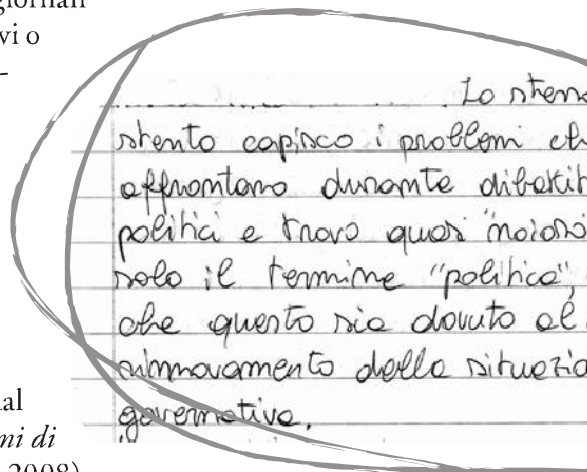 giornali
vi o
-
Lo stess
stento capisco i problemi ch
affrontano durante dibatti
politici e trovo quasi noioso
solo il termine "politica",
che questo sia dovuto al
rinnovamento della situazio
governativa.
al
mi di
2008)